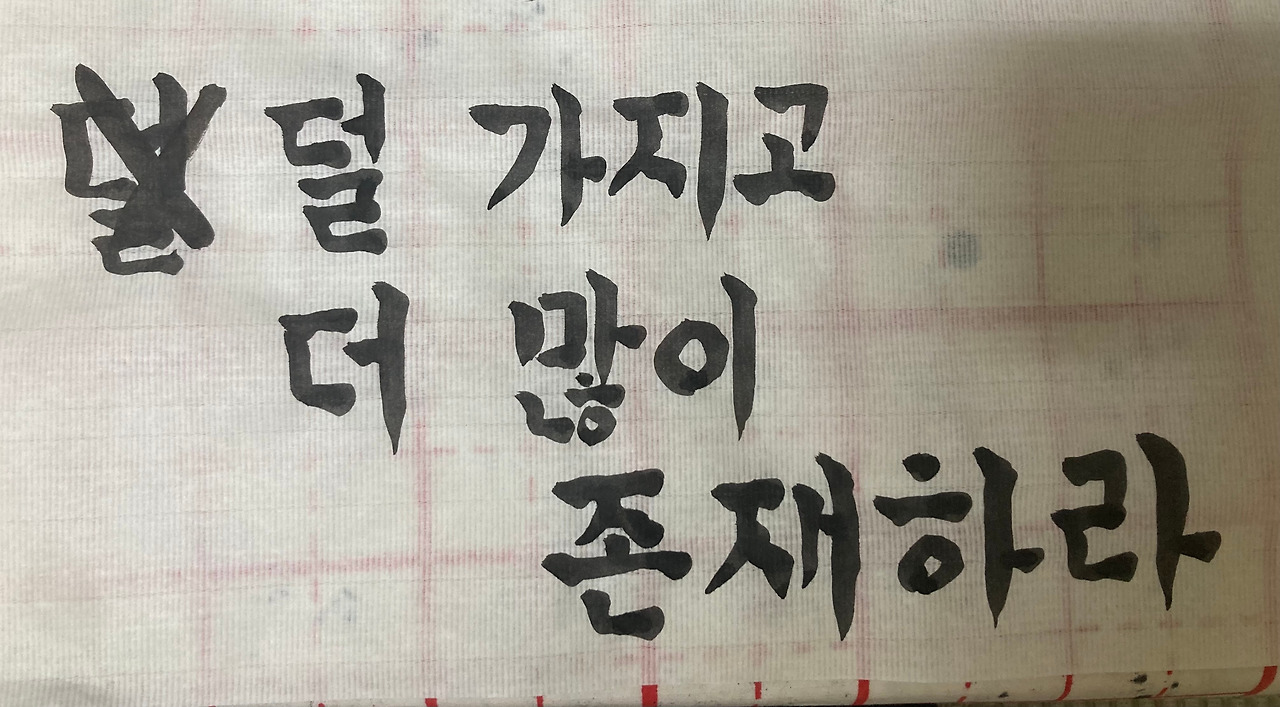 덜 가지고
더 많이
존재하라